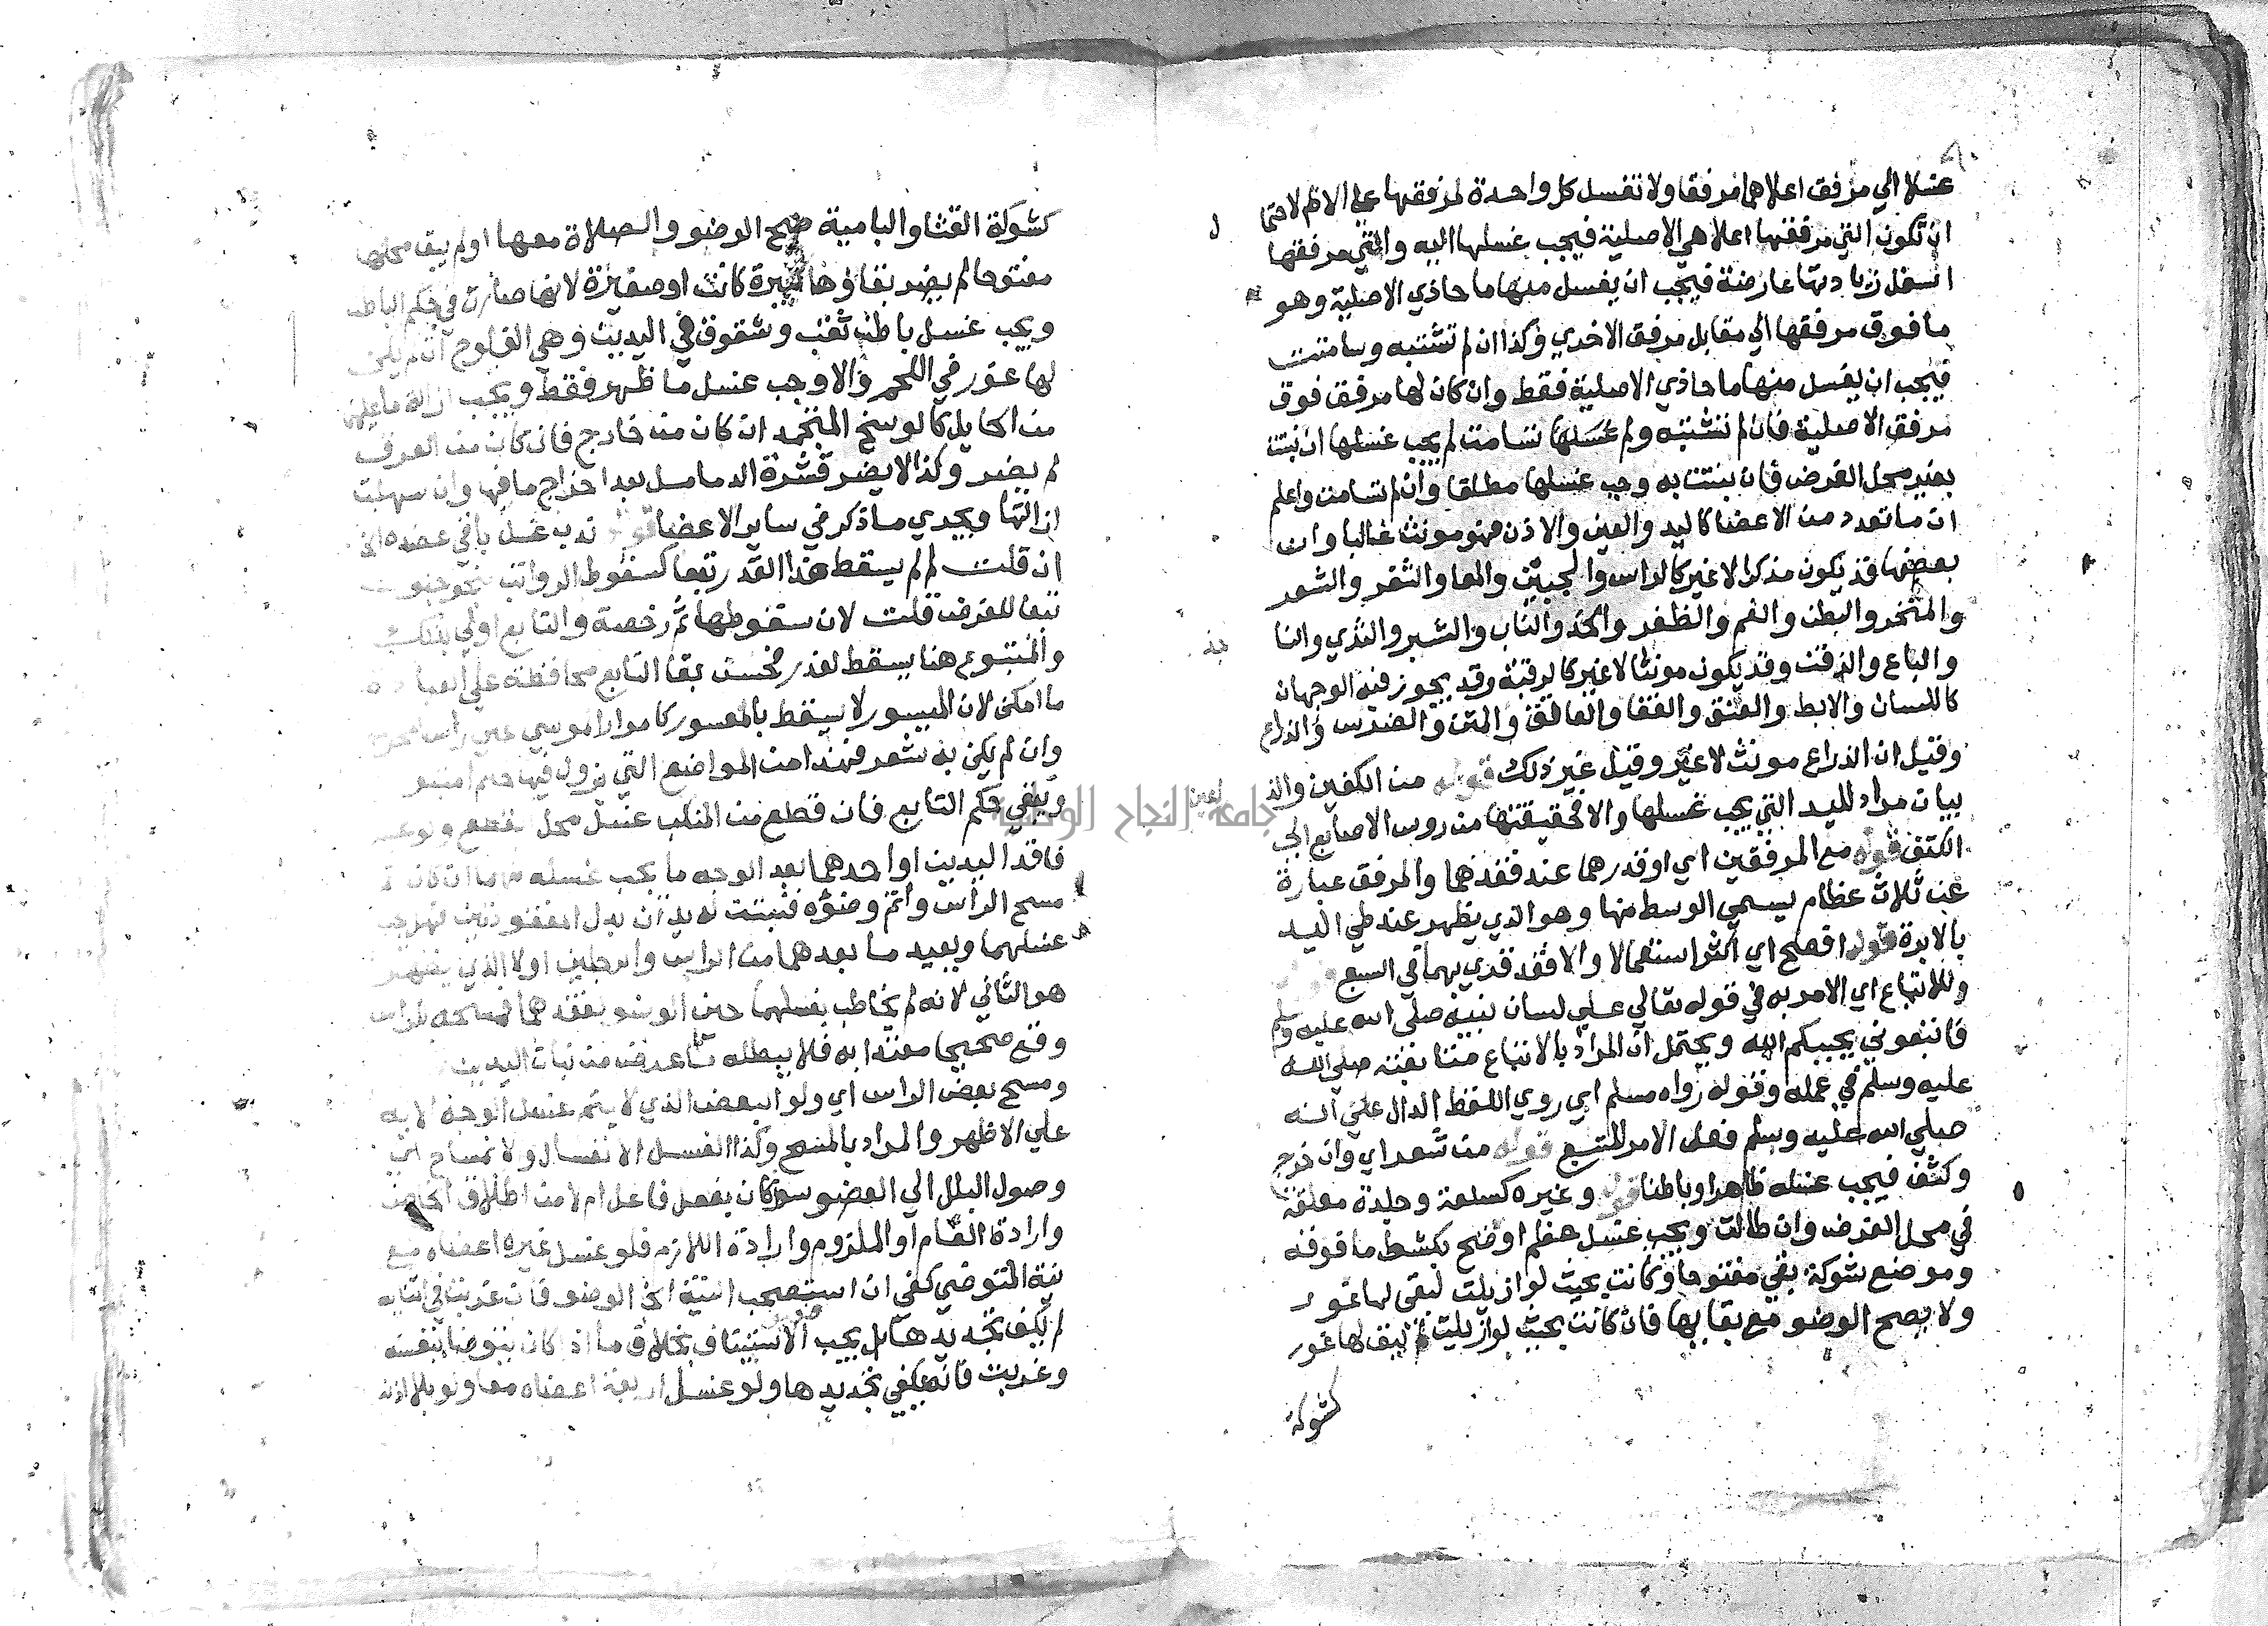 غسلا الي مرفق اعلاهما مرفقا ولا تغسل كل واحدة لمرفقها علي الاظهر لاحتما
ل
ان تكون التي مرفقها اعلا هي الاصلية فيجب غسلها اليه والتي مرفقها
اسفل زيادتها عارضة فيجب ان يغسل منها ما حاذي الاصلية وهو
ما فوق مرفقها الي مقابل مرفق الاخري وكذا ان لم تشتبه وسامتت
فيجب ان يغسل منها ما حاذي الاصلية فقط وان كان لها مرفق فوق
مرفق الاصلية فان لم تشتبه ولم تسامت لم يجب غسلها ان نبتت
بغير محل الفرض فان نبتت به وجب غسلها مطلقا وان لم تسامت واعلم
ان ما تعدد من الاعضا كاليد والعين والاذن فهو مونث غالبا وان
بعضها قد يكون مذكرا لا غير كالراس والجبين والمعا والثغر والشعر
والمنخر والبطن والفم والظفر والخد والناب والشبر والثدي والنا
جذ
والباع والذقن وقد يكون مونثا لا غير كالرقبة وقد يجوز فيه الوجهان
كاللسان والابط والعنق والقفا والعاتق والمتن والضرس والذراع
وقيل ان الذراع مونث لا غير وقيل غير ذلك قوله من الكفين والذ
راعين
بيان مراد لليد التي يجب غسلها والا فحقيقتها من روس الاصابع الي
الكتف قوله مع المرفقين اي او قدرهما عند فقدهما والمرفق عبارة
عن ثلاث عظام يسمي الوسط منها وهو الذي يظهر عند طي اليد
بالابرة قوله افصح اي اكثر استعمالا والا فقد قري بهما في السبع
وللاتباع اي الامر به في قوله تعالي علي لسان نبيه صلي الله عليه وسلم
فاتبعوني يحببكم الله ويحتمل ان المراد بالاتباع متابعته صلي الله
عليه وسلم في عمله وقوله رواه مسلم اي روي اللفظ الدال علي انه
صلي الله عليه وسلم فعل الامر المتبع قوله من شعر اي وان خرج
وكثف فيجب غسله ظاهرا وباطنا قوله وغيره كسلعة وجلدة معلقة
في محل الفرض وان طالت ويجب غسل عظم اوضح بكشط ما فوقه
وموضع شوكة بقي مفتوحا وكانت بحيث لو ازيلت لبقي لها غور
ولا يصح الوضو مع بقايها فان كانت بحيث لو ازيلت لم يبق لها غور
كشوكة
كشوكة القثا والبامية صح الوضو والصلاة معها اولم يبق محلها
مفتوحا لم يضر بقاؤها كبيرة كانت او صغيرة لانها صارت في حكم الباطن
ويجب غسل باطن ثقب وشقوق في اليدين وهي الفلوح ان لم يكن
لها غور في اللحم والا وجب غسل ما ظهر فقط ويجب ازالة ما عليها
من الحايل كالوسخ المتجمد ان كان من خارج فان كان من العرق
لم يضر وكذا لا يضر قشرة الدمامل بعد اخراج ما فيها وان سهلت
ازالتها ويجري ما ذكر في ساير الاعضا قوله ندب غسل باقي عضده الخ
ان قلت لم لم يسقط هذا القدر تبعا كسقوط الرواتب بنحو جنون
تبعا للفرض قلت لان سقوطها ثم رخصة والتابع اولي بذلك
والمتبوع هنا يسقط لعذر فحسن بقا التابع محافظة علي العبادة
ما امكن لان الميسور لا يسقط بالمعسور كامرار الموسي علي راس المحرم
وان لم يكن به شعر فهذا من المواضع التي يزول فيها حكم المتبو
ويبقي حكم التابع فان قطع من المنكب غسل محل القطع ولو غسل
فاقد اليدين او احدهما بعد الوجه ما يجب غسله منهما ان كان ثم
مسح الراس واتم وضوه فنبتت له يدان بدل المفقودتين لم يجب
غسلهما ويعيد ما بعدهما من الراس والرجلين اولا الذي يظهر
هو الثاني لانه لم يخاطب بغسلهما حين الوضو بفقدهما فمسحه للراس
وقع صحيحا معتدا به فلا يبطله ما عرض من نبات اليدين
ومسح بعض الراس اي ولو البعض الذي لا يتم غسل الوجه الا به
علي الاظهر والمراد بالمسح وكذا الغسل الانغسال والانمساح اي
وصول البلل الي العضو سوا كان بفعل فاعل ام لا من اطلاق الخاص
وارادة العام او الملزوم وارادة اللازم فلو غسل غيره اعضاه مع
نية المتوضي كفي ان استصحب النية الي الوضو فان عزبت في اثنايه
لم يكف تجديدها بل يجب الاستيناف بخلاف ما اذا كان يتوضا بنفسه
وعزبت فانه يكفي تجديدها ولو غسل اربعة اعضاه معا ولو بلا اذن
جامعة النجاح الوطنية